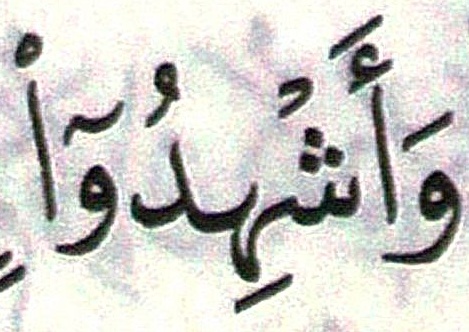 وَأَشْهِدُوٓا۟